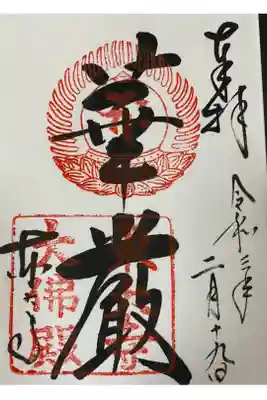 奉拝
令和三年
二月十九日
華厳
東大寺
大佛殿